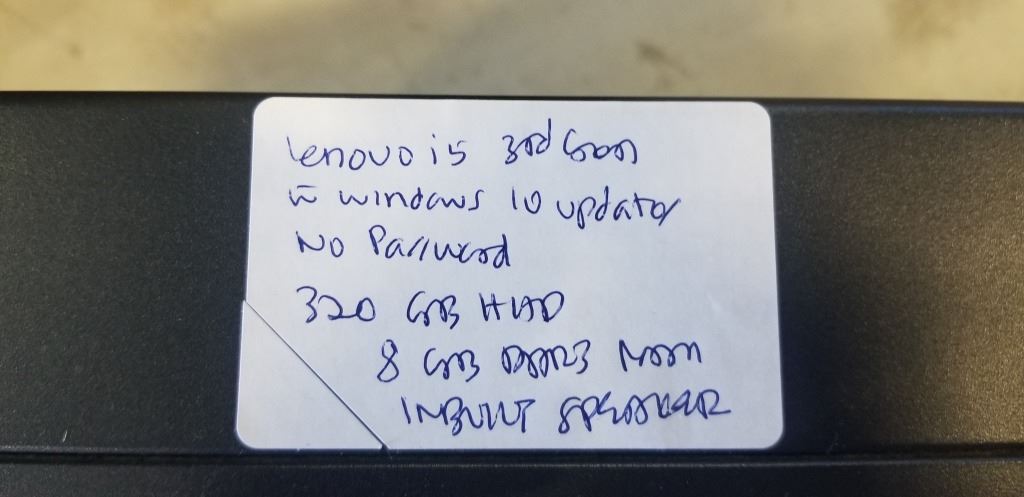 Lenovo i5 3rd Gen
w̄ windows 10 updates
No Password
320 GB HDD
8 GB DDR3 Mem
INBUILT SPEAKER